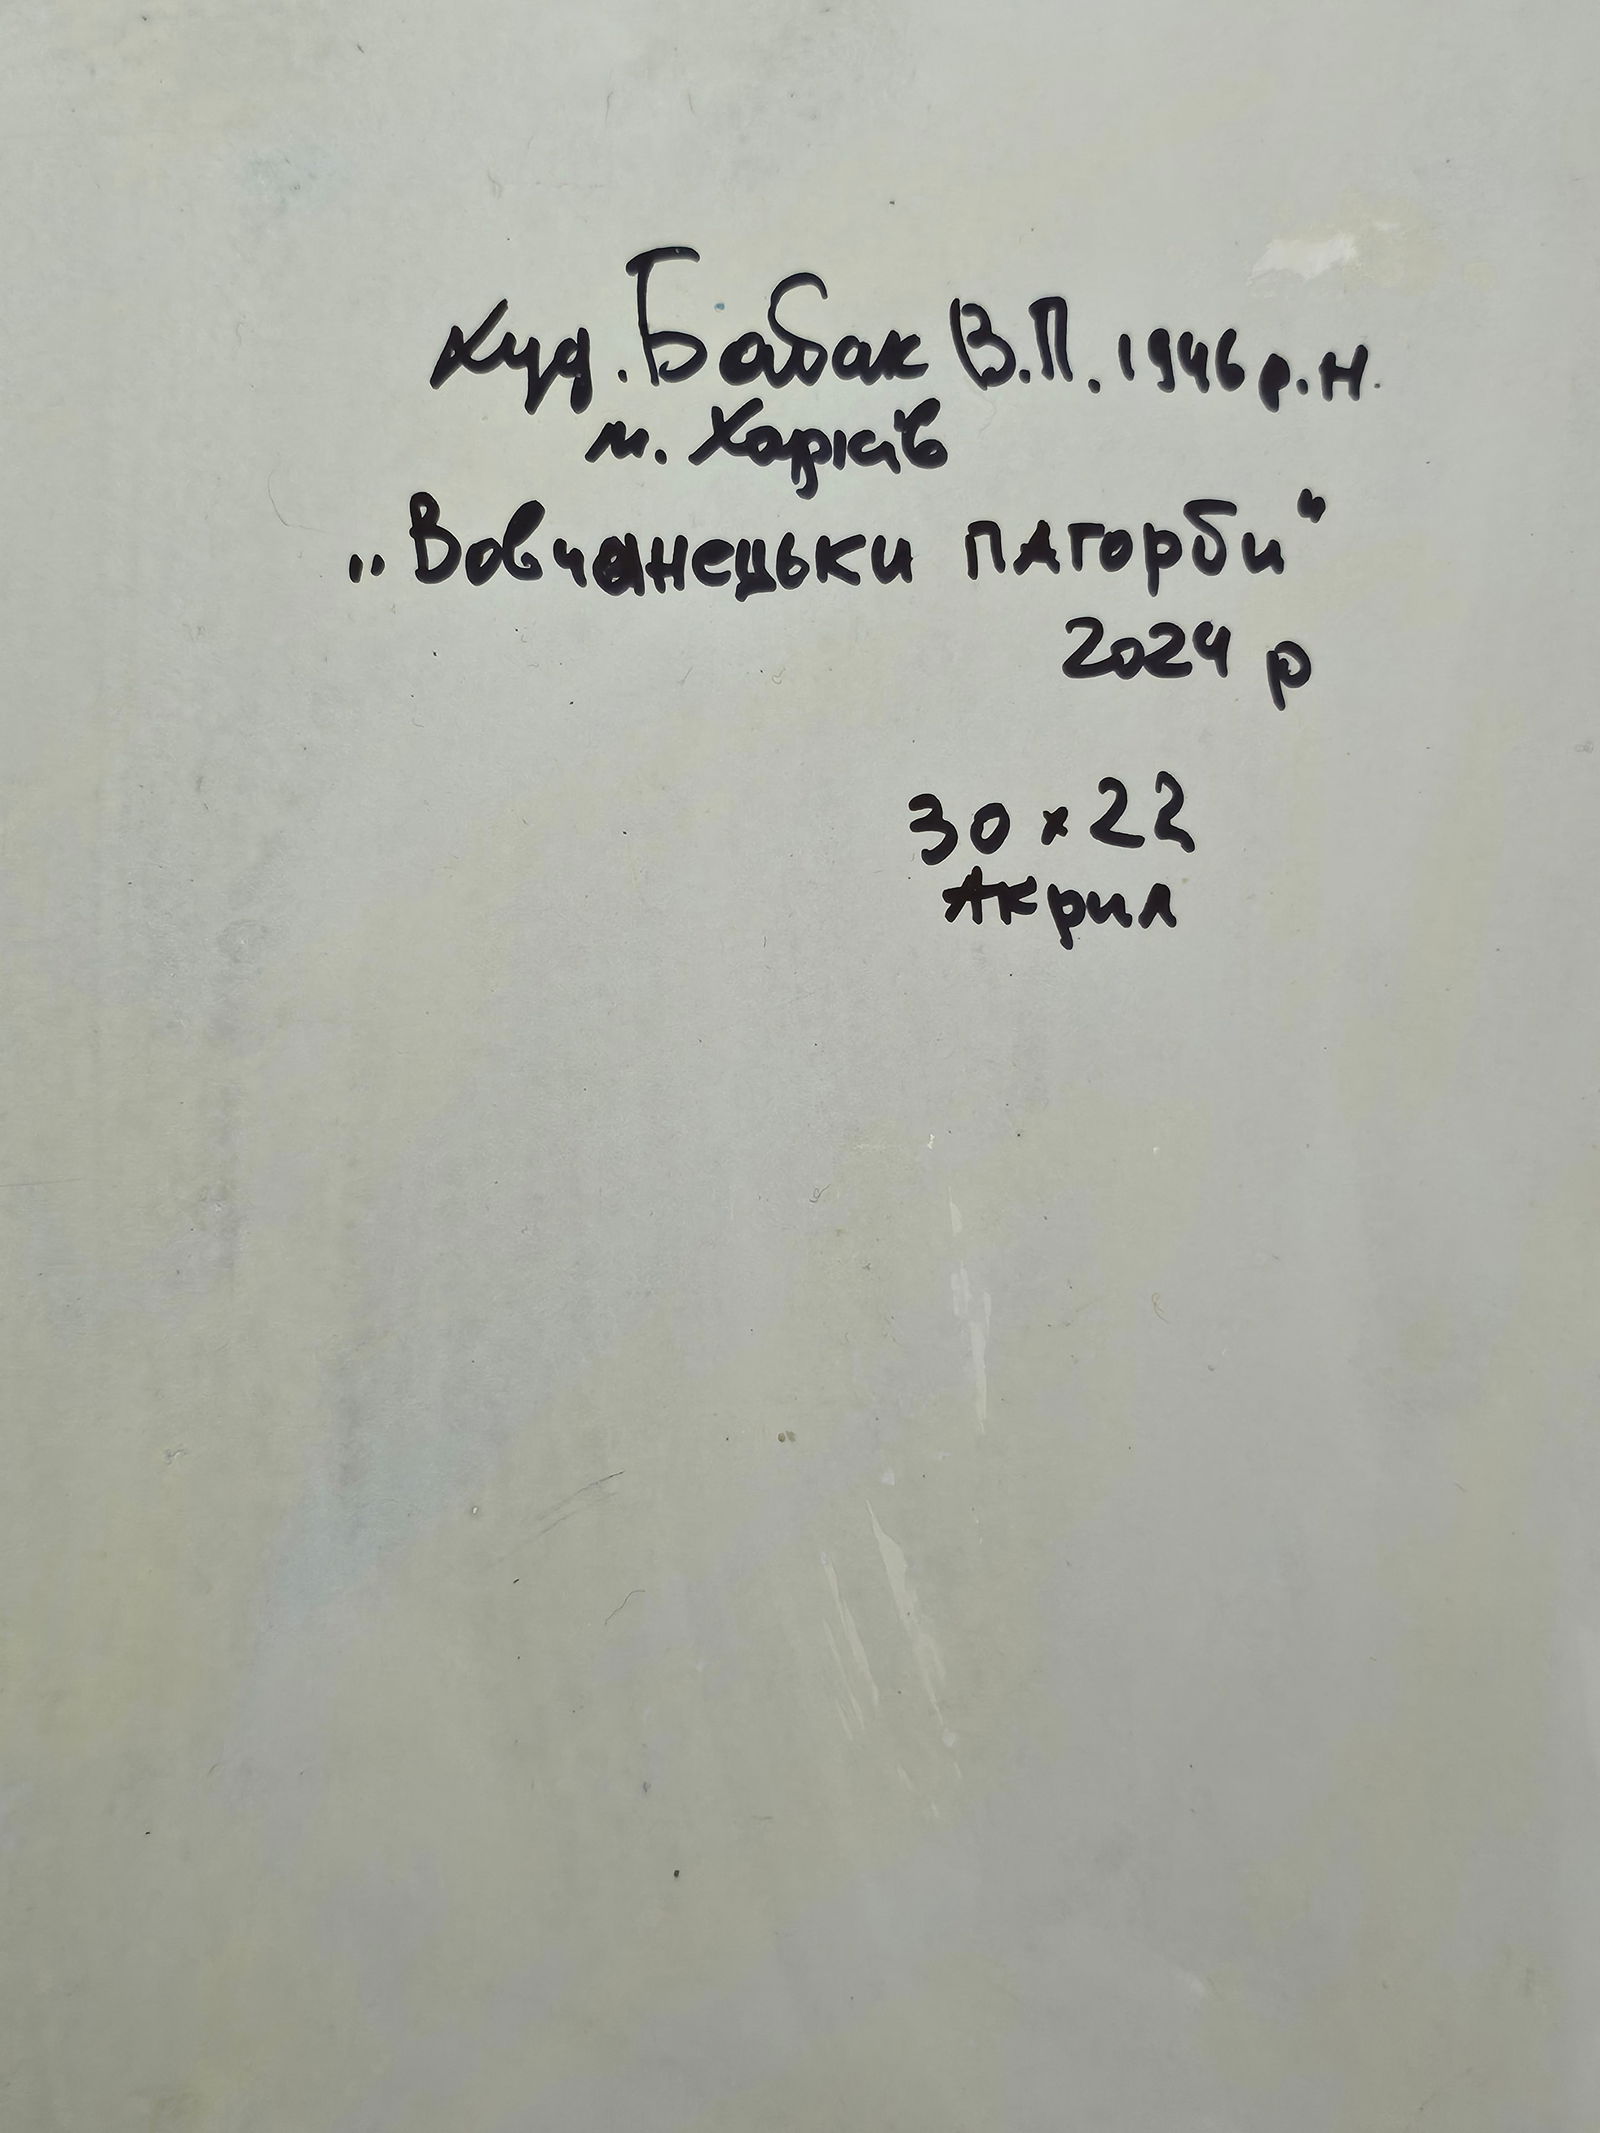 Худ. Бабак В.П. 1946 р.н.
м. Харків
„Вовчанецьки пагорби“
2024 р
30 x 22
Акрил